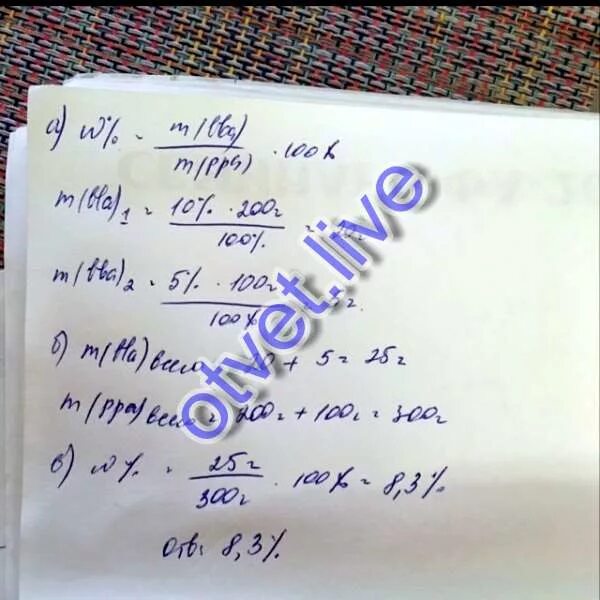 а) w% = m(вва) / m(рра) · 100%
m(вва)1 = 10% · 200г / 100% = 20г
m(вва)2 = 5% · 100г / 100% = 5г
б) m(вва)всего = 20 + 5 = 25г
m(рра)всего = 200г + 100г = 300г
в) w% = 25г / 300г · 100% = 8,3%
Отв: 8,3%
otvet.live